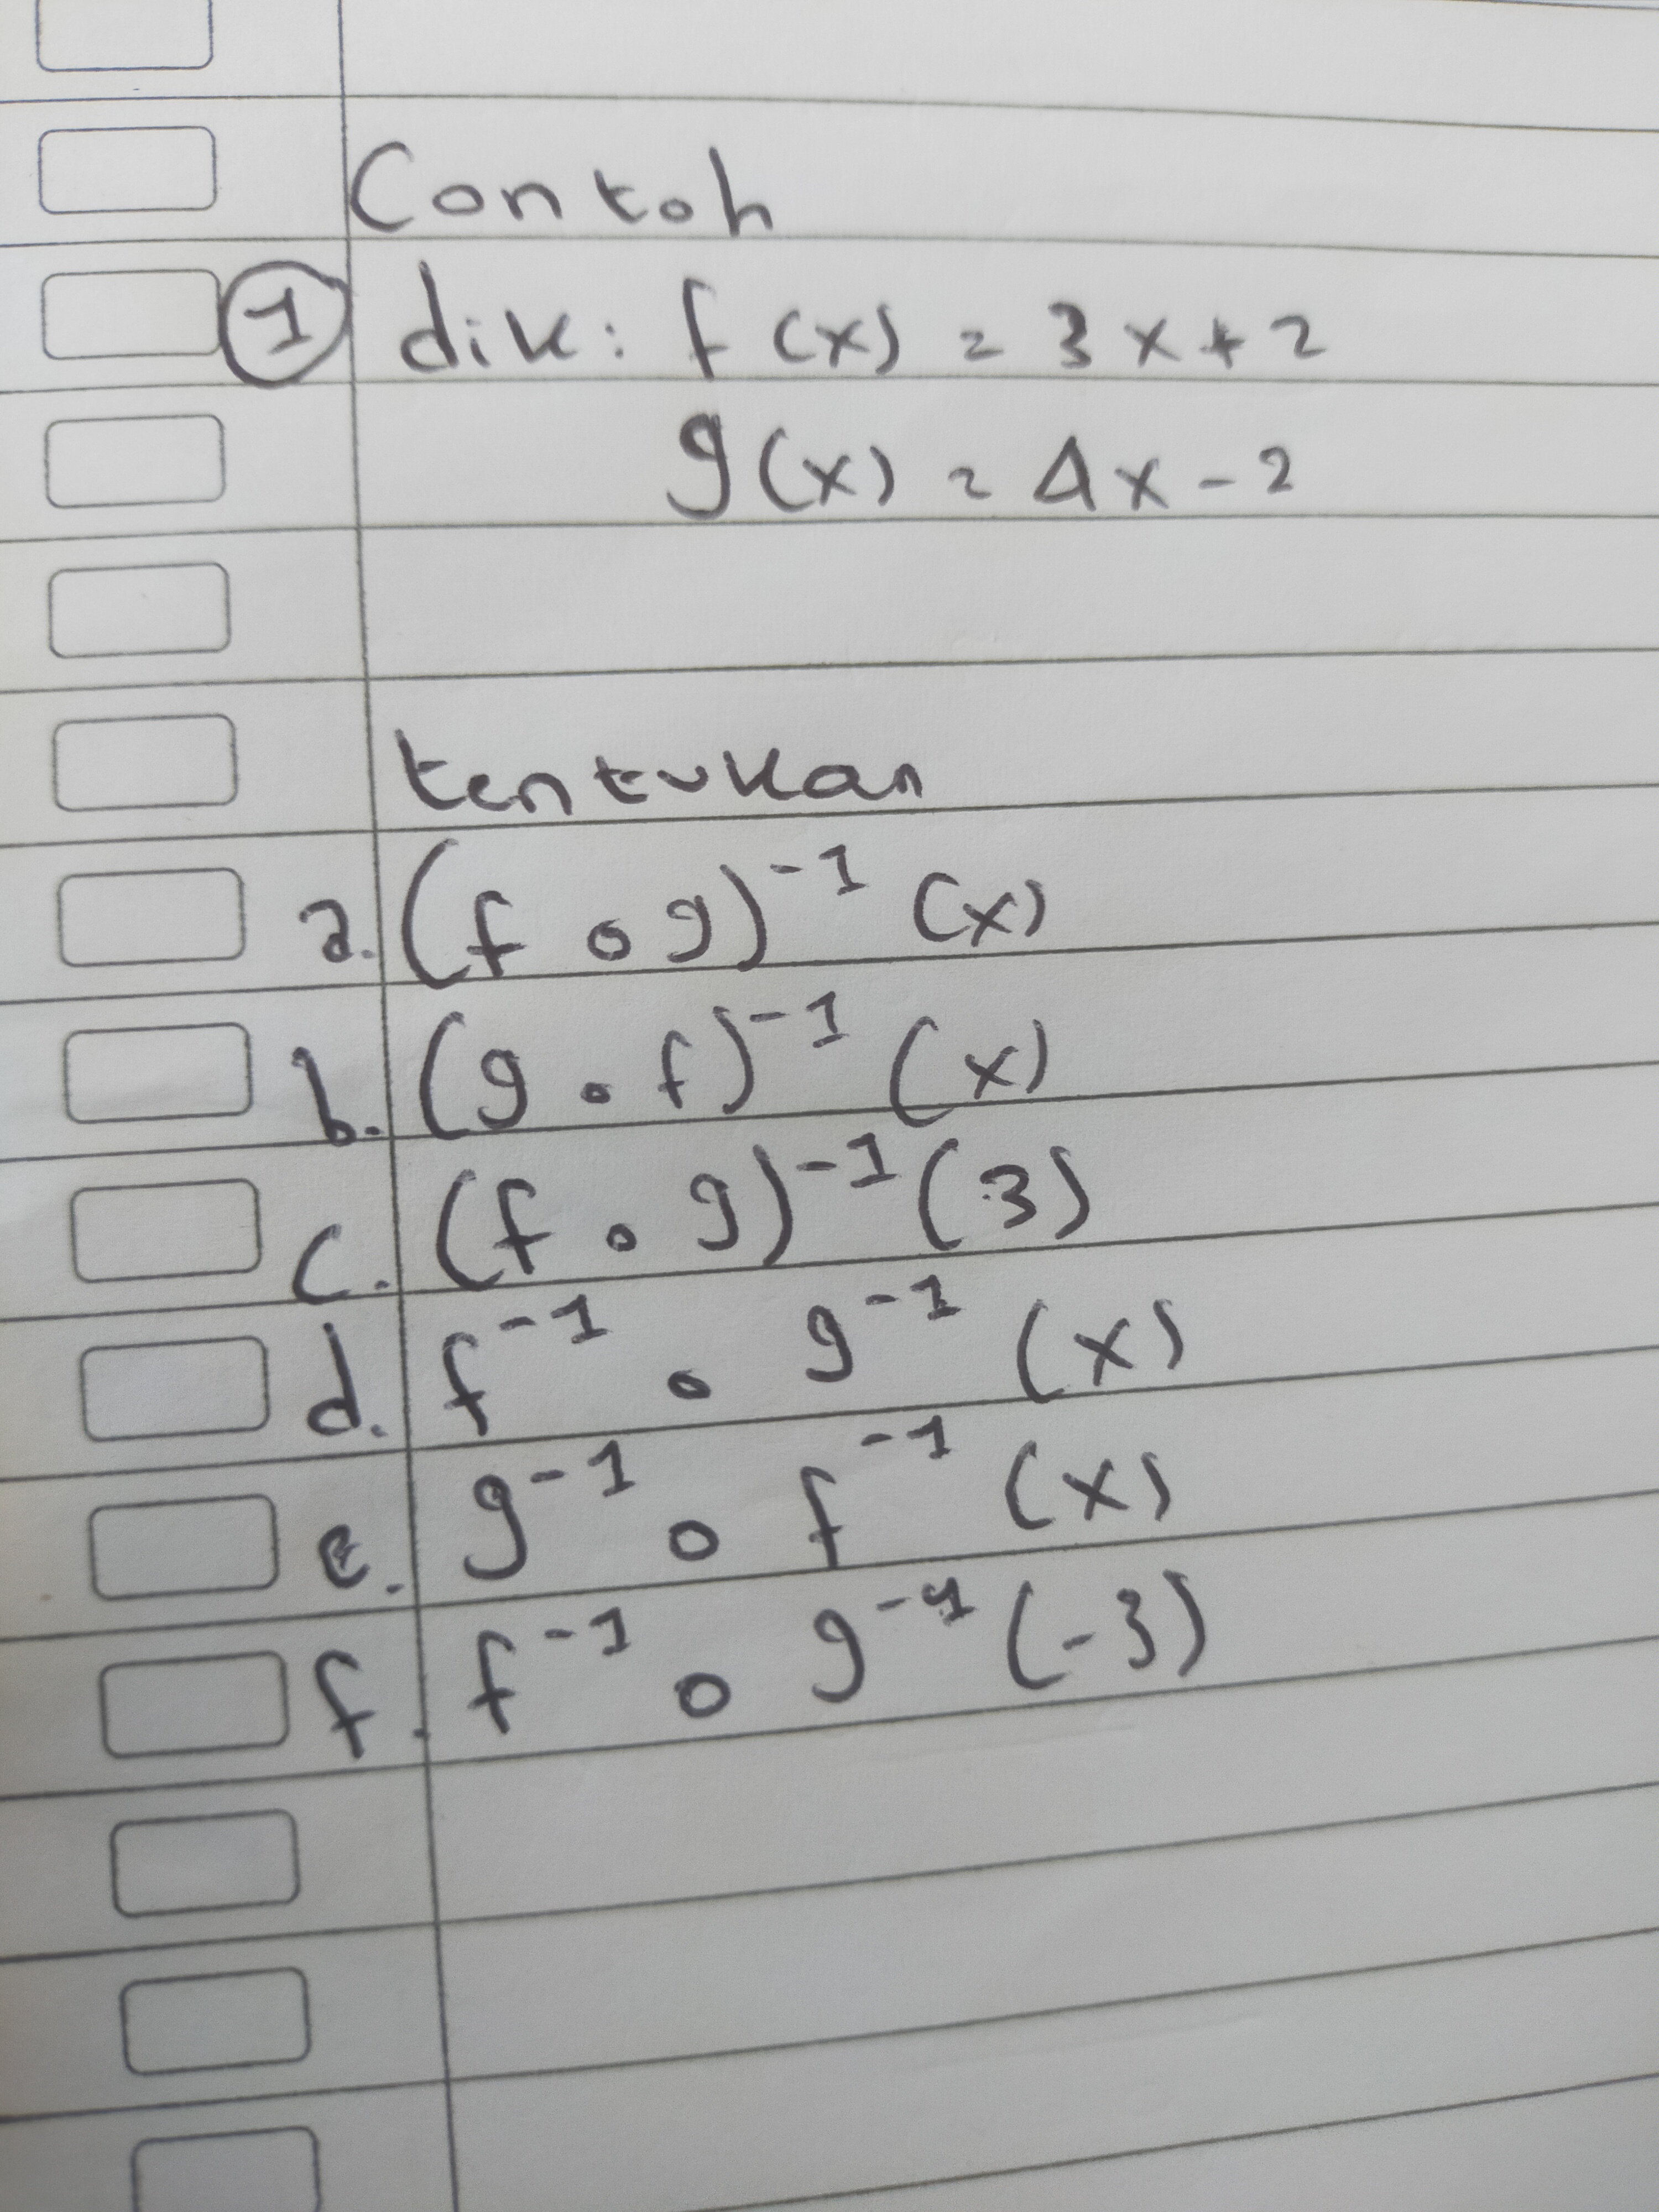 Contoh
1 dik: f(x) = 3x+2
g(x) = 4x-2
tentukan
a. (f o g)⁻¹ (x)
b. (g o f)⁻¹ (x)
c. (f o g)⁻¹ (3)
d. f⁻¹ o g⁻¹ (x)
e. g⁻¹ o f⁻¹ (x)
f. f⁻¹ o g⁻¹ (-3)